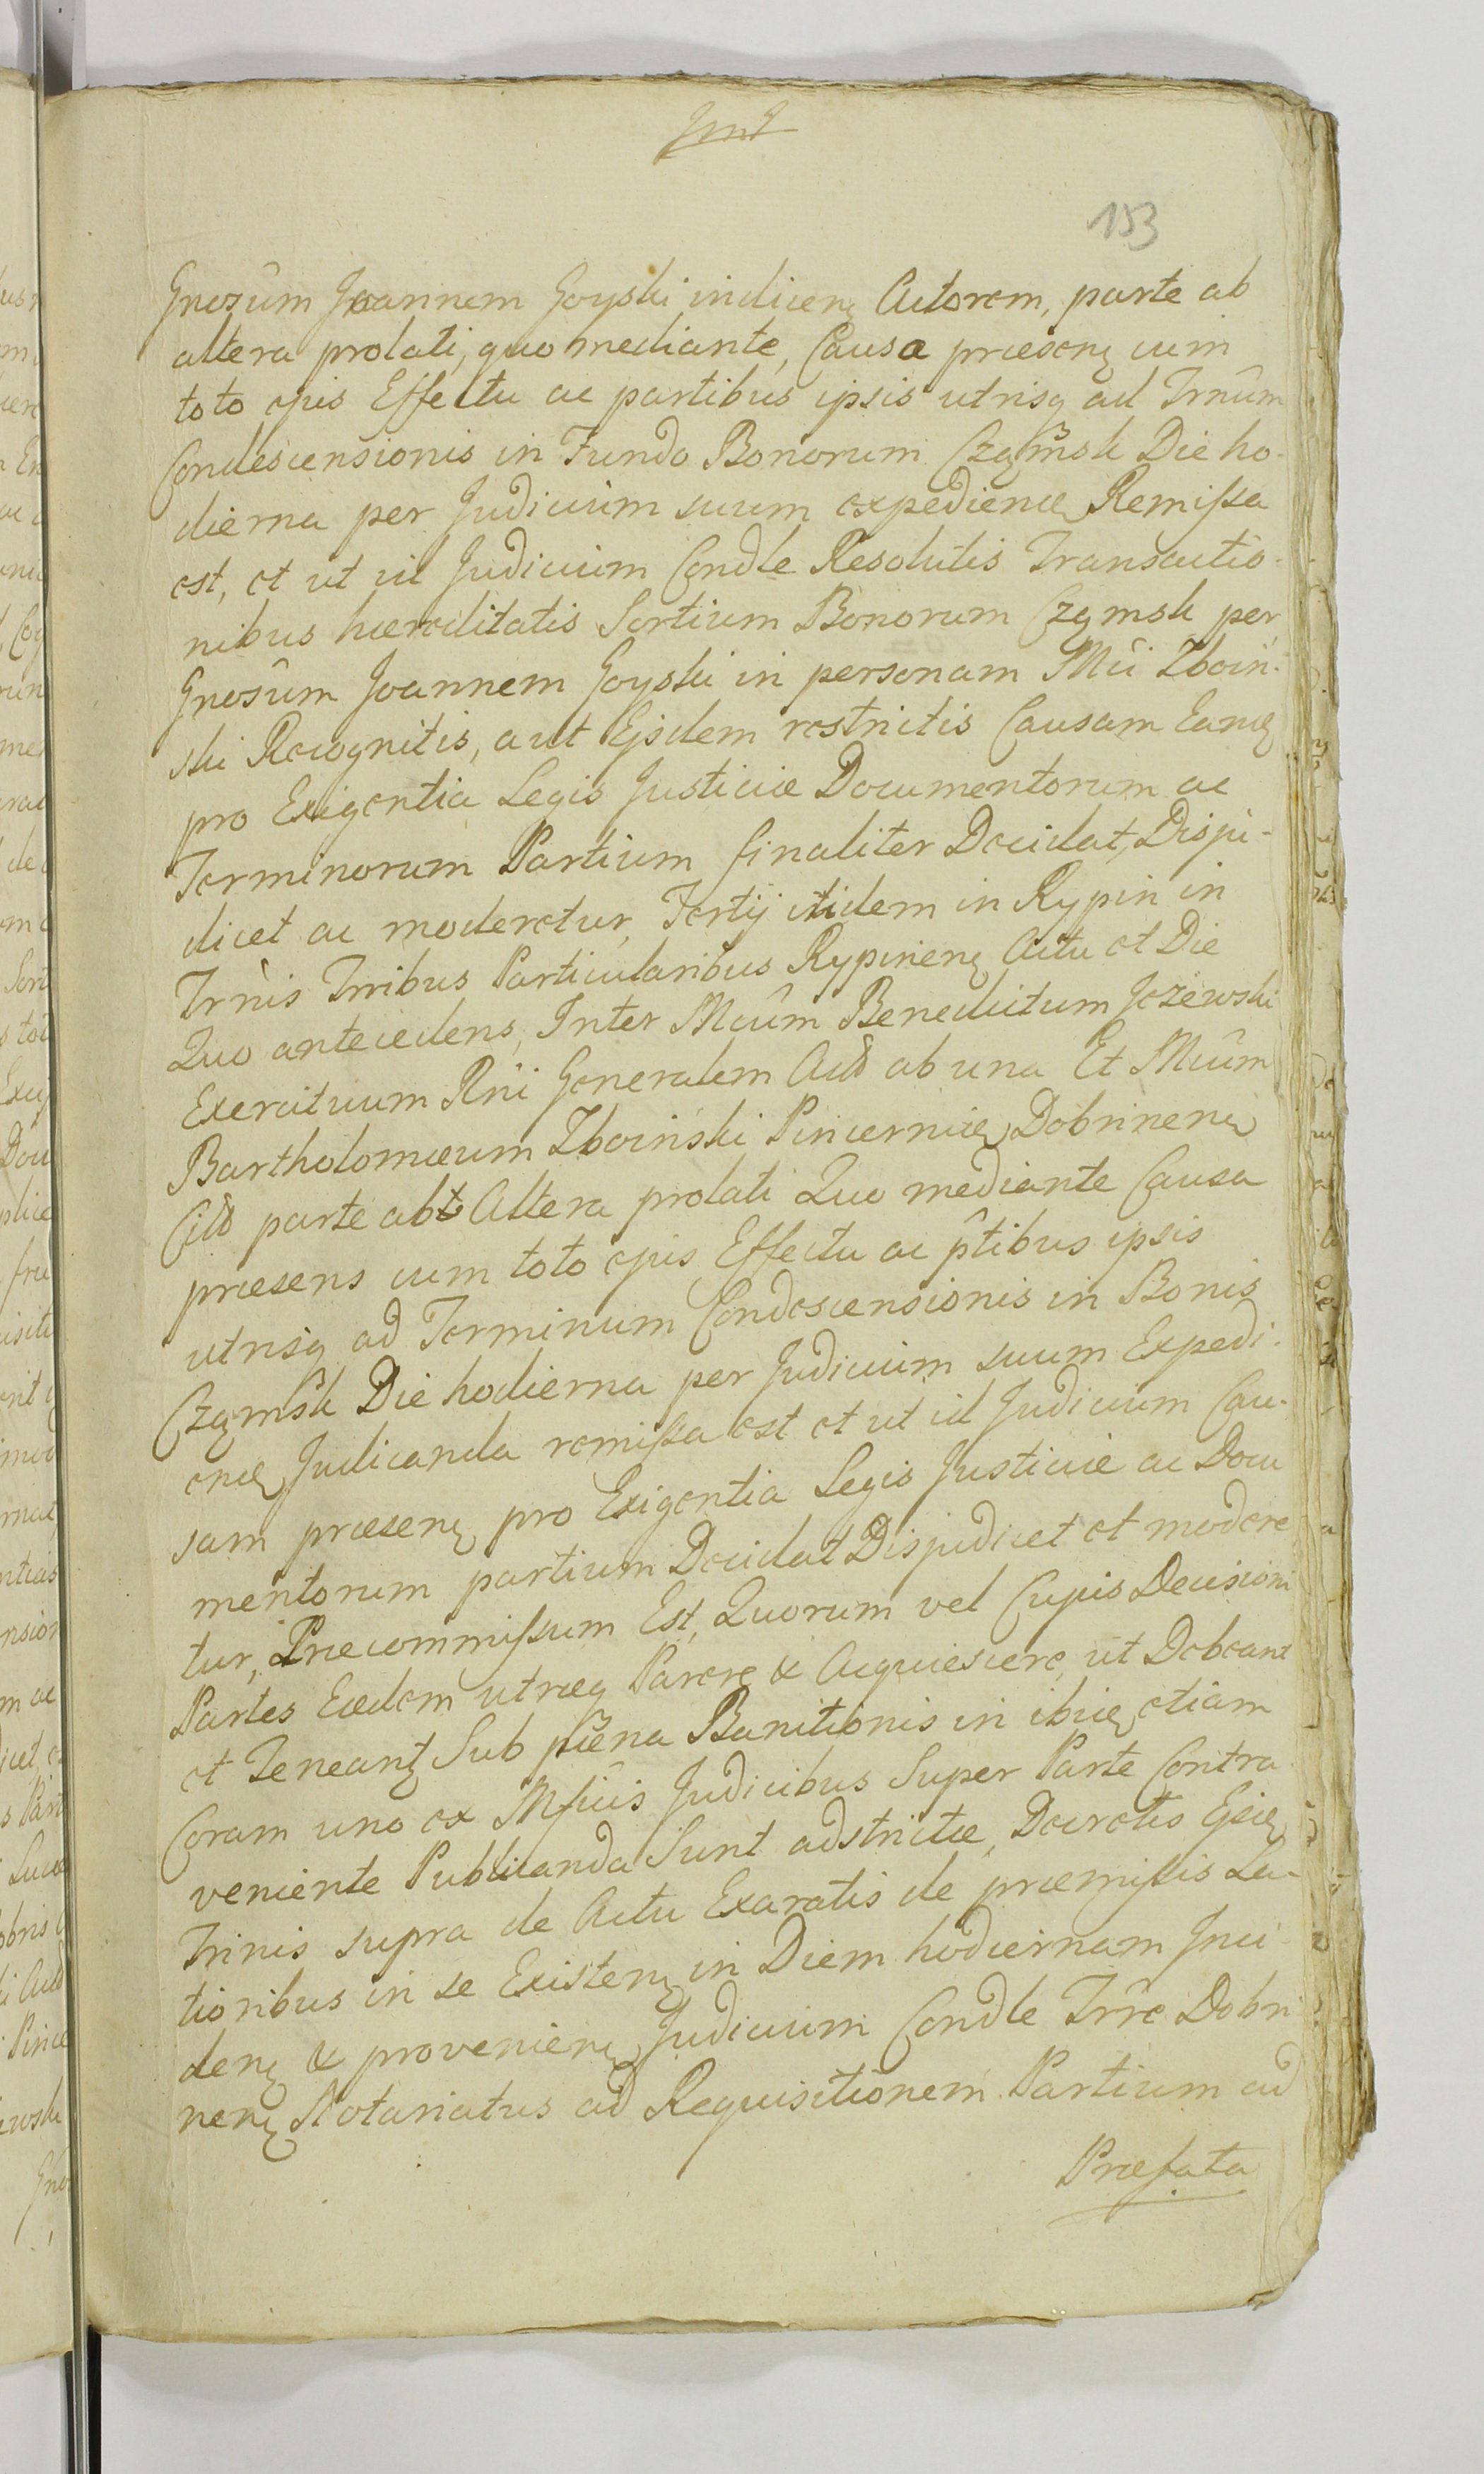 153
Gnosûm Joannem Goyski indicenę Actorem, parte ab
altera prolati, quo mediante, Causa præsenę cum
toto ejus Effectu ac partibus ipsis utrisq ad Trnûm
Condescensionis in Fundo Bonorum Cząmsk Die ho-
dierna per Judicium suum expedienę Remissa
est, et ut id Judicium Condle Resolutis Transactio-
nibus hæreditatis Sortium Bonorum Cząmsk per
Gnosûm Joannem Goyski in personam Mci Zboiń-
ski Recognitis, aut Ejsdem restrictis Causam Eandę
pro Exigentia Legis Justiciæ Documentorum ac
Terminorum Partium finaliter Decidat, Disju-
dicet ac moderetur, Tertij itidem in Rypin in
Trnis Trribus Particularibus Rypinenę Actu et Die
Quo antecedens, Inter Mcûm Benedictum Jezewski
Exercituum Rni Generalem Actt ab una Et Mcûm
Bartholomæum Zboiński Pincernæ Dobrinenę
Citt parte abt Altera prolati Quo mediante Causa
præsens cum toto ejus Effectu ac ptibus ipsis
utrisq ad Terminum Condescensionis in Bonis
Cząmsk Die hodierna per Judicium suum Expedi-
enę Judicanda remissa est et ut id Judicium Cau-
sam præsenę pro Exigentia Legis Justiciæ ac Docu
mentorum partium Decidat Disjudicet et modere
tur, Præcommissum Est, Quorum vel Cujus Decisioni
Partes Eædem utræq Parere & Acquiescere, ut Debeant
et Teneantę Sub pœna Banitionis in ibidę etiam
Coram uno ex Msficis Judicibus Super Parte Contra
veniente Publicanda Sunt adstrictæ, Decretis Ejsdę
Trinis supra de Actu Exaratis de præmissis La-
tioribus in se Existenę in Diem hodiernam Inci-
denę & provenienę Judicium Condle Trre Dobri
nenę Notariatus ad Requisitionem Partium ad
Præfata